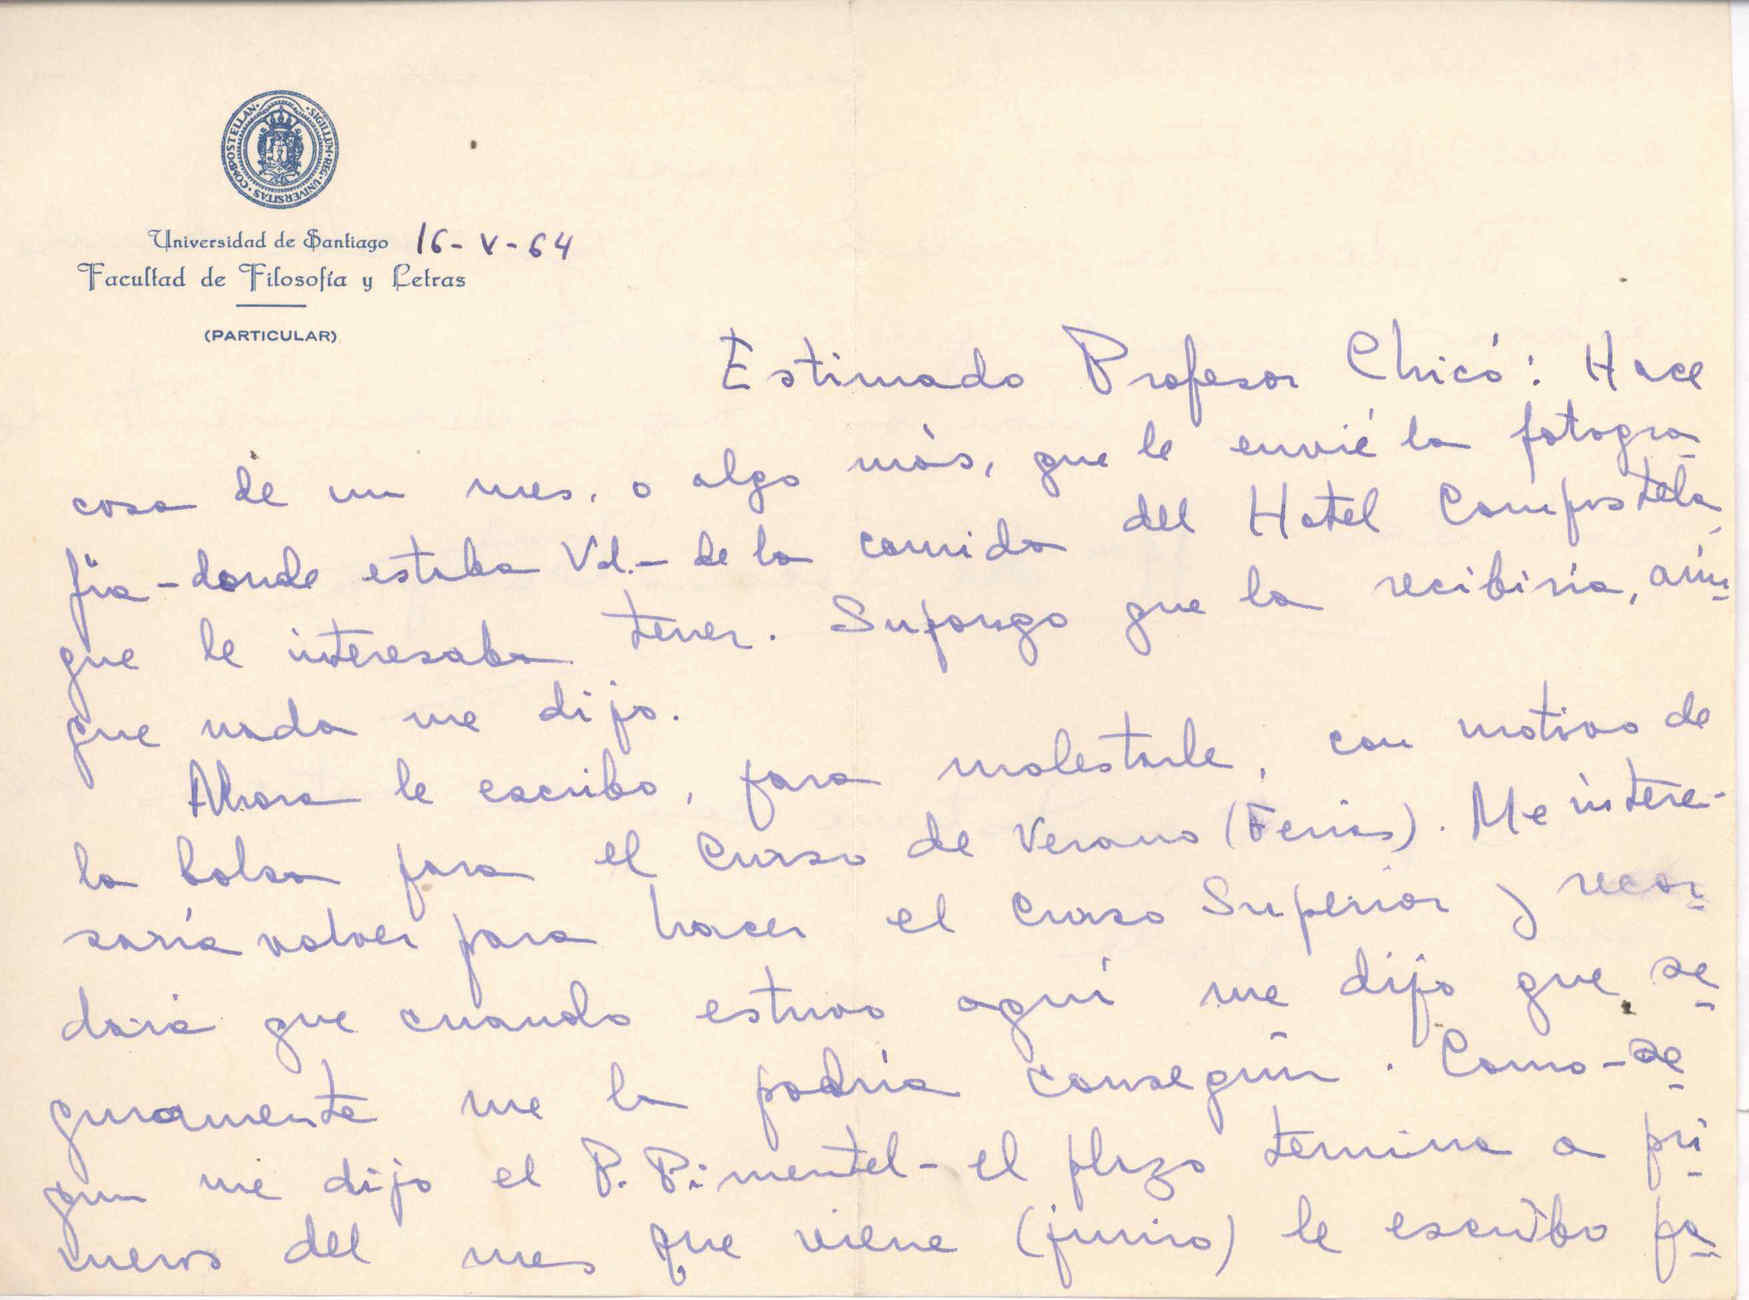 SIGILLUM·REG·UNIVERSITAS·COMPOSTELLAN·
Universidad de Santiago 16-V-64
Facultad de Filosofía y Letras
(PARTICULAR)
Estimado Profesor Chicó: Hace
cosa de un mes, o algo más, que le envié la fotogra
fía - donde estaba Vd. - de la comida del Hotel Compostela,
que le interesaba tener. Supongo que la recibiria, aún-
que nada me dijo.
Ahora le escribo, para molestarle, con motivo de
la bolsa para el Curso de Verano (Ferias). Me intere-
saría volver para hacer el Curso Superior y recor-
dará que cuando estuvo aquí me dijo que se-
guramente me la podría conseguir. Como - se-
gun me dijo el P. Pimentel - el plazo termina a pri-
meros del mes que viene (junio) le escribo pa-